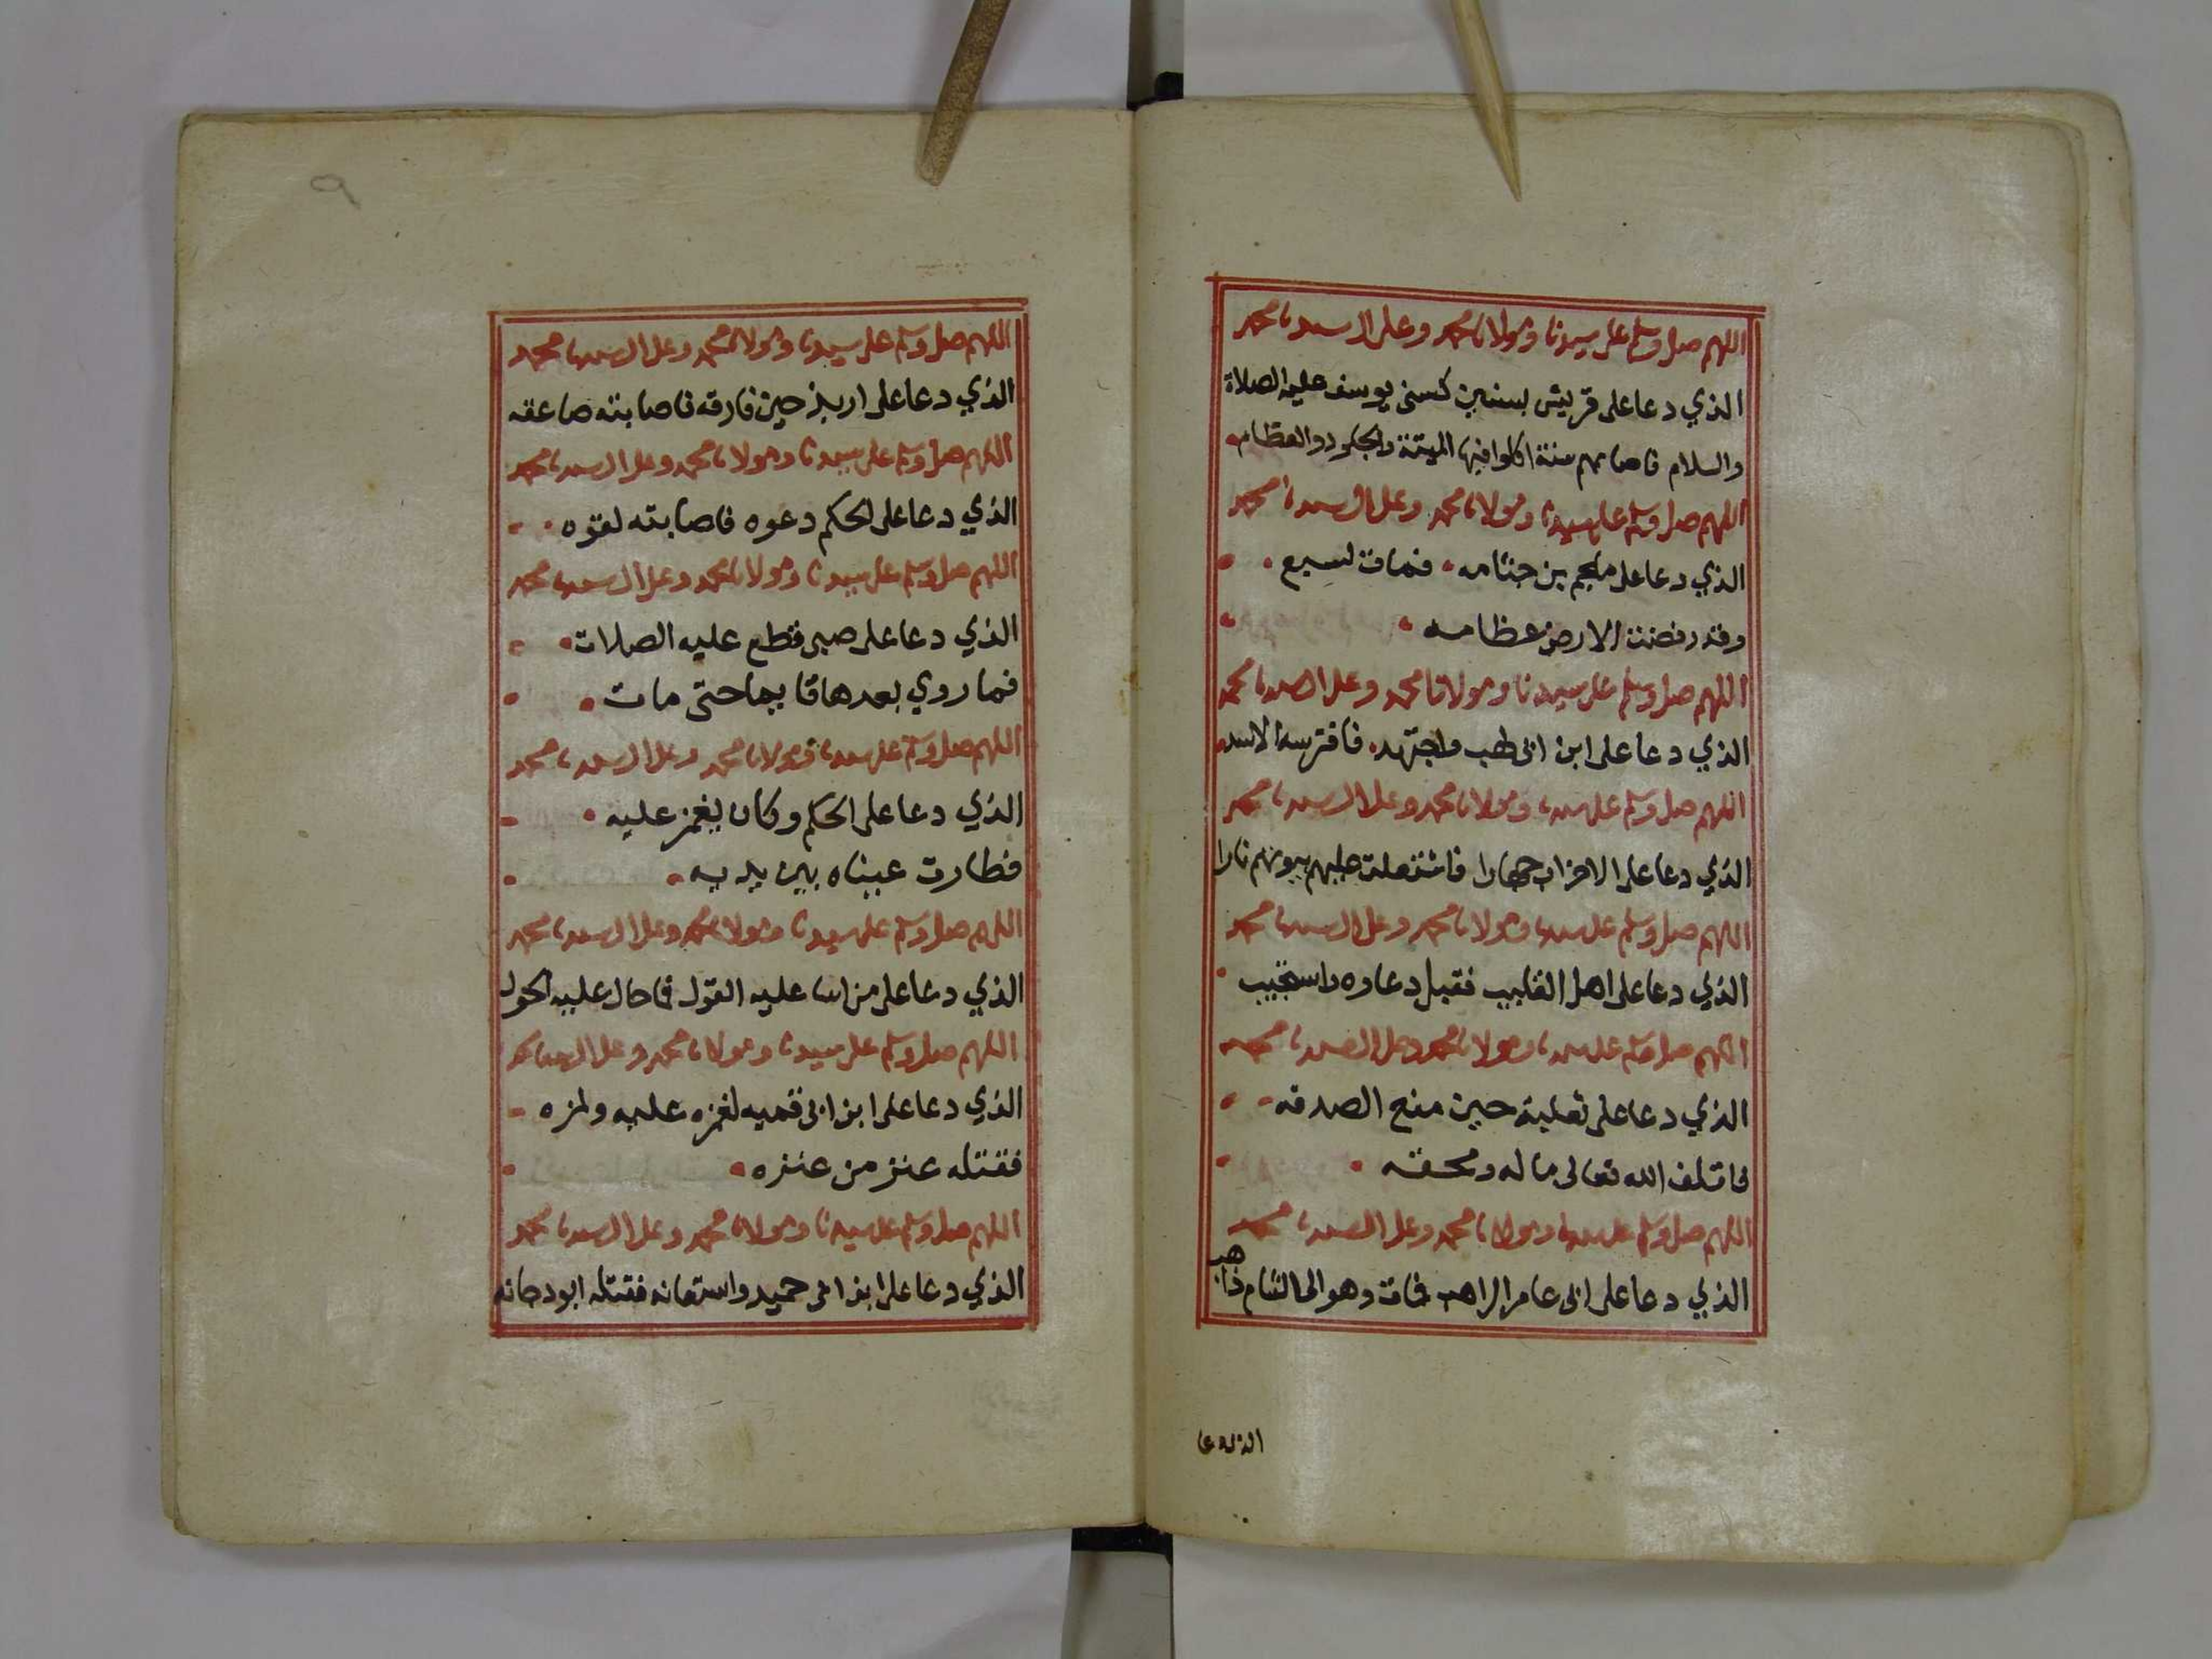 اللهم صل وسلم على سيدنا ومولانا محمد وعلى ال سيدنا محمد
الذي دعا على قريش بسنين كسنى يوسف عليه الصلاة
والسلام فاصابهم سنة اكلوا فيها الميتة والجلود والعظام
اللهم صل وسلم على سيدنا ومولانا محمد وعلى ال سيدنا محمد
الذي دعا على ملجم بن جثامه فمات لسبع
وقد رفضت الارض عظامه
اللهم صل وسلم على سيدنا ومولانا محمد وعلى ال سيدنا محمد
الذي دعا على ابن ابى لهب واجتهد فافترسه الاسد
اللهم صل وسلم على سيدنا ومولانا محمد وعلى ال سيدنا محمد
الذي دعا على الاحزاب جهارا فاشتعلت عليهم بيوتهم نارا
اللهم صل وسلم على سيدنا ومولانا محمد وعلى ال سيدنا محمد
الذي دعا على اهل القليب فقبل دعاوه واستجيب
اللهم صل وسلم على سيدنا ومولانا محمد وعلى ال سيدنا محمد
الذي دعا على ثعلبة حين منع الصدقه
فاتلف الله تعالى ماله ومحقه
اللهم صل وسلم على سيدنا ومولانا محمد وعلى ال سيدنا محمد
الذي دعا على ابى عامر الراهب فمات وهو الى الشام ذاهب
الذي دعا
٩
اللهم صل وسلم على سيدنا ومولانا محمد وعلى ال سيدنا محمد
الذي دعا على اربد حين فارقه فاصابته صاعقه
اللهم صل وسلم على سيدنا ومولانا محمد وعلى ال سيدنا محمد
الذي دعا على الحكم دعوه فاصابته لقوه
اللهم صل وسلم على سيدنا ومولانا محمد وعلى ال سيدنا محمد
الذي دعا على صبى قطع عليه الصلات
فما روي بعدها قايما حتى مات
اللهم صل وسلم على سيدنا ومولانا محمد وعلى ال سيدنا محمد
الذي دعا على الحكم وكان يغمز عليه
فطارت عيناه بين يديه
اللهم صل وسلم على سيدنا ومولانا محمد وعلى ال سيدنا محمد
الذي دعا على من اسا عليه القول فاحال عليه الحول
اللهم صل وسلم على سيدنا ومولانا محمد وعلى ال سيدنا محمد
الذي دعا على ابن ابى قميه لغمزه عليه ولمزه
فقتله عنز من عنزه
اللهم صل وسلم على سيدنا ومولانا محمد وعلى ال سيدنا محمد
الذي دعا على ابن ابى حميد واستعانه فقتله ابو دجانه